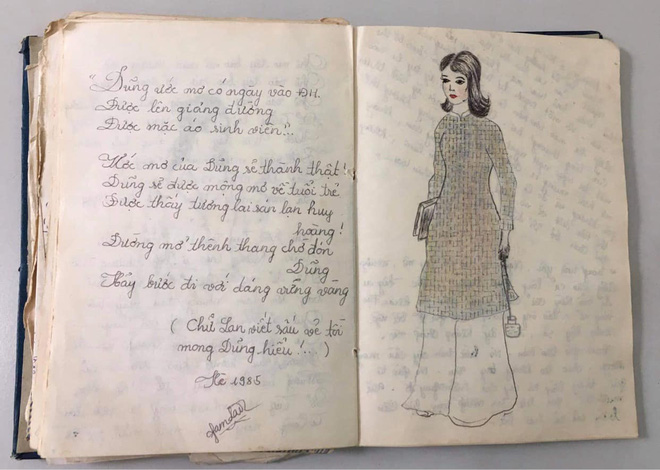 "Dũng ước mơ có ngày vào ĐH.
Được lên giảng đường
Được mặc áo sinh viên!..
Ước mơ của Dũng sẽ thành thật!
Dũng sẽ được mộng mơ về tuổi trẻ
Được thấy tương lai sán lạn huy
hoàng!
Đường mở thênh thang chờ đón
Dũng
Hãy bước đi với dáng vững vàng
( Chữ Lan viết xấu vẽ tồi
mong Dũng hiểu!... )
Hè 1985